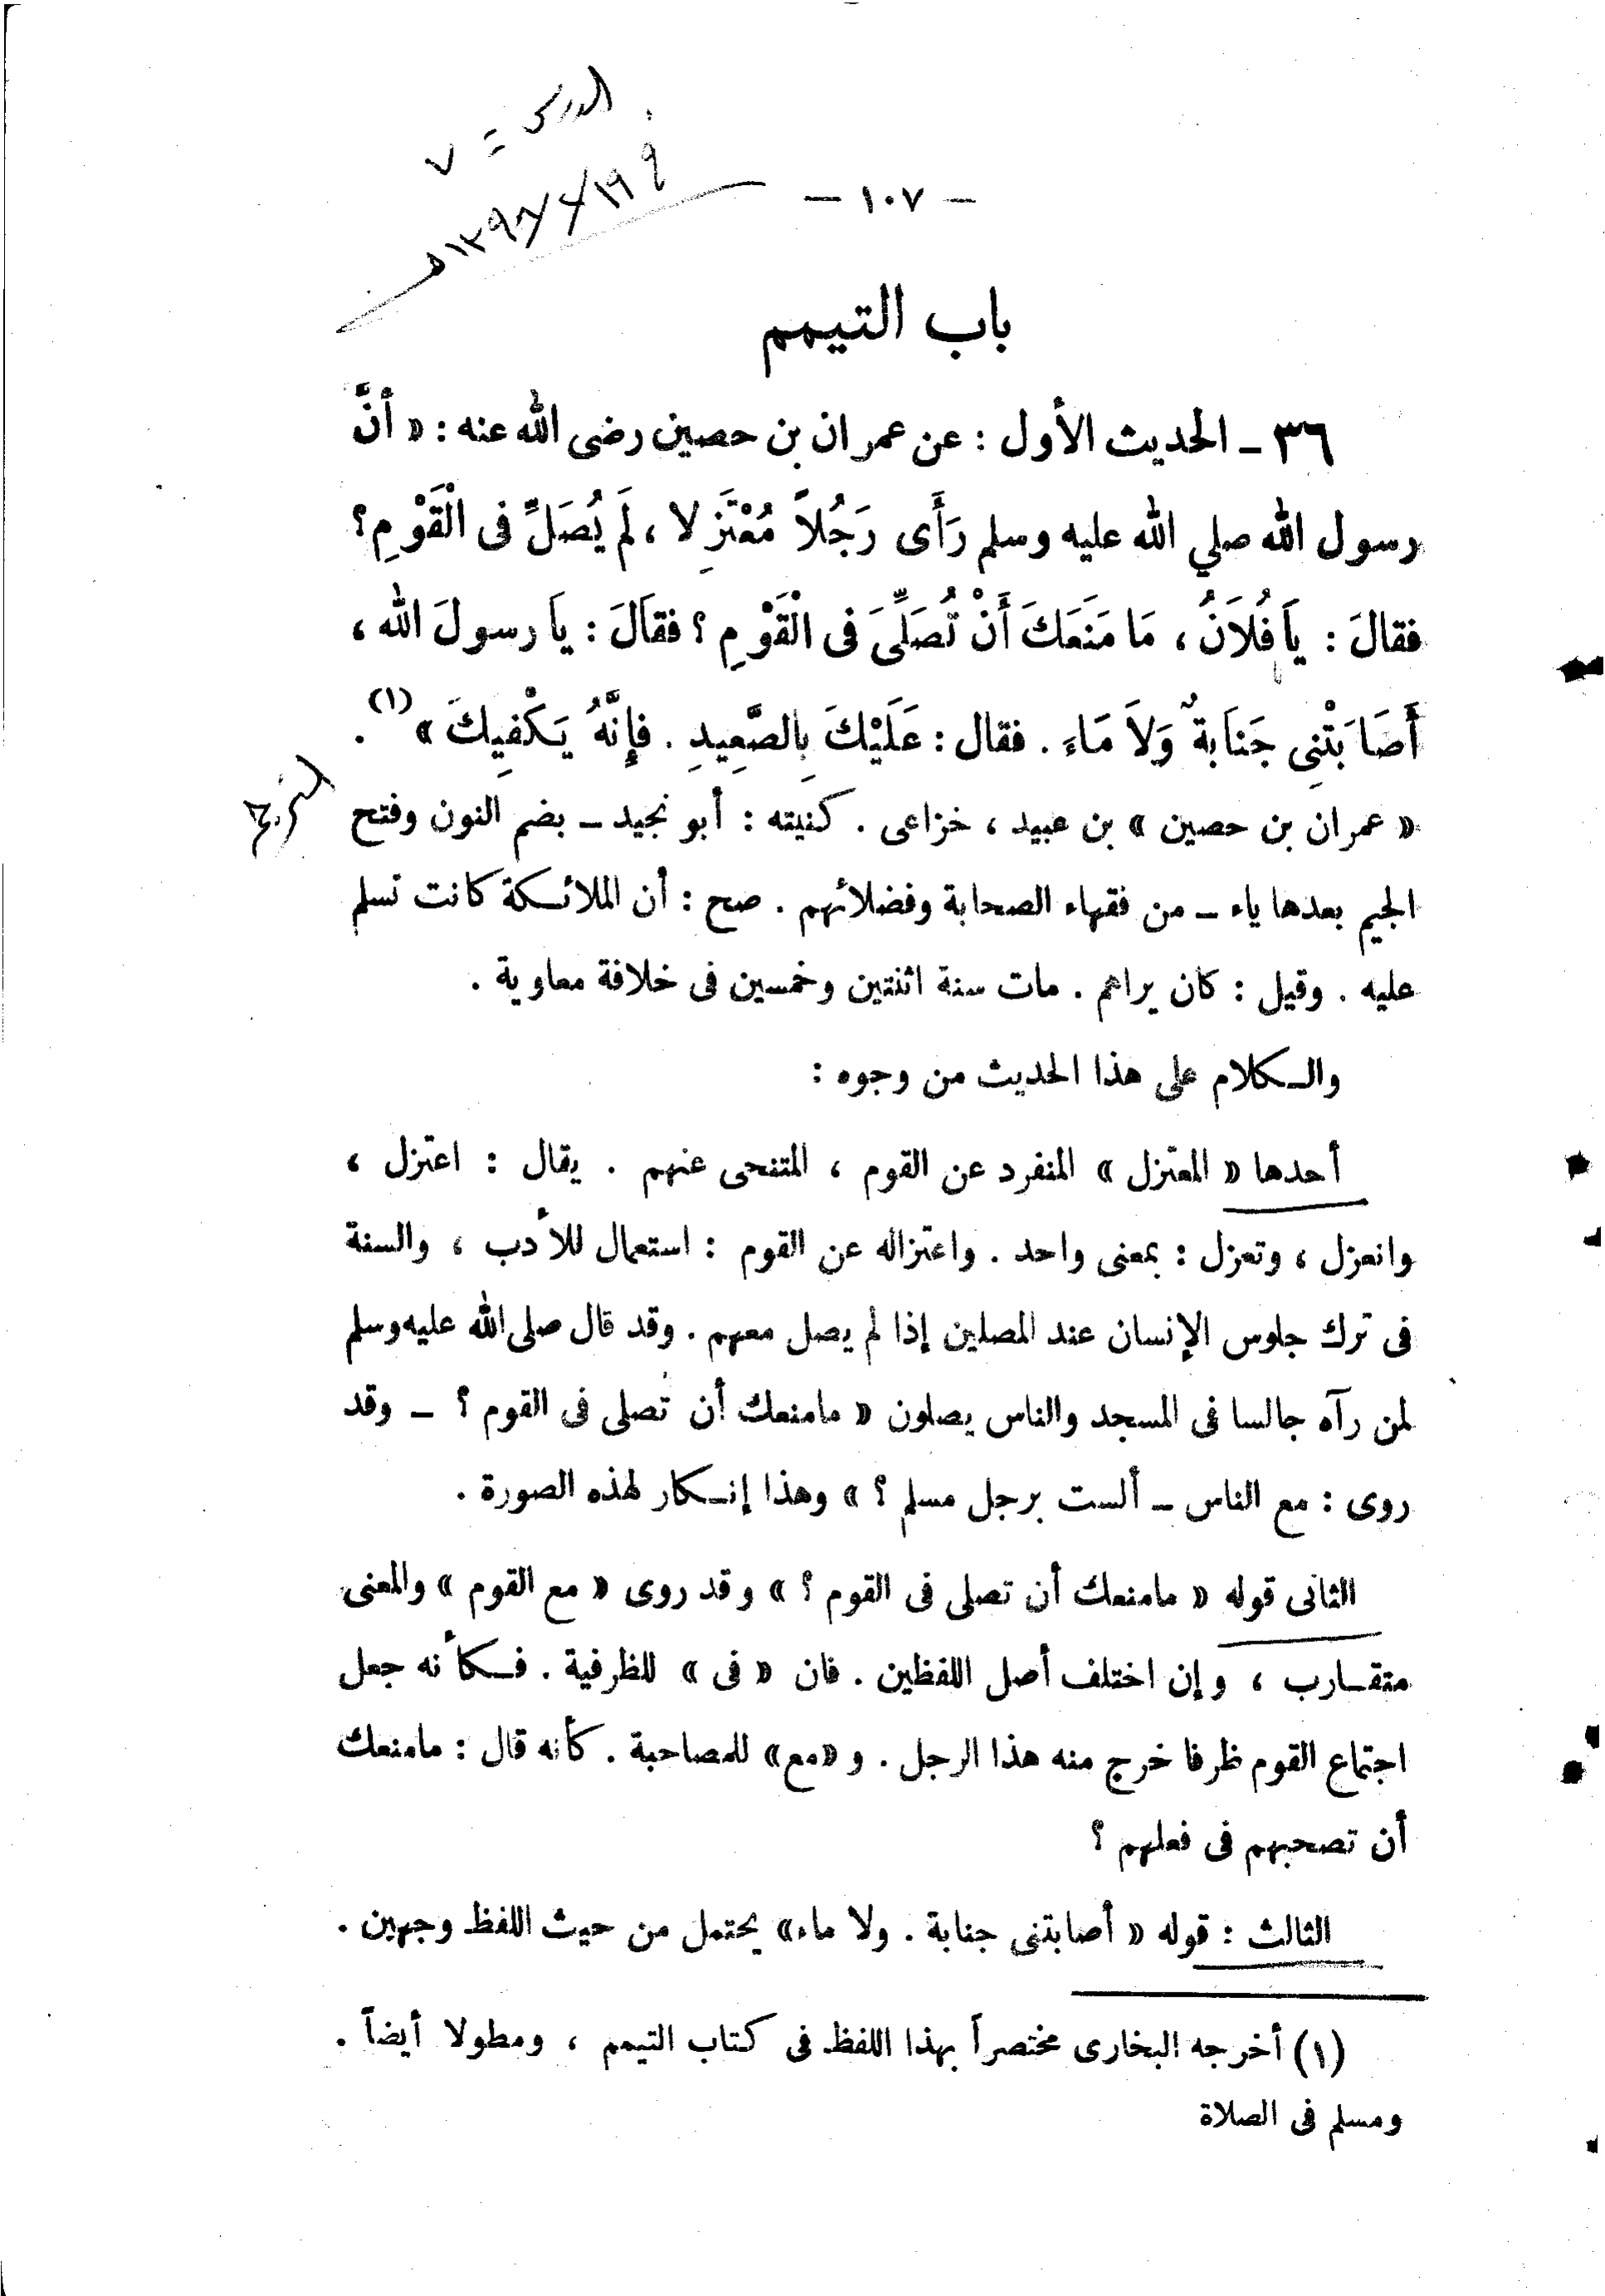 الدرس = ٧
- ١٠٧ -
باب التيمم
٣٦ - الحديث الأول : عن عمران بن حصين رضى الله عنه : « أَنَّ
رسول الله صلي الله عليه وسلم رَأَى رَجُلاً مُعْتَزِلا ، لَم يُصَلِّ فى الْقَوْمِ ؟
فقالَ : يَا فُلاَنُ ، مَا مَنَعَكَ أَنْ تُصَلِّىَ فى الْقَوْمِ ؟ فقَالَ : يَا رسولَ الله ،
أَصَابَتْنِى جَنَابَةٌ وَلاَ مَاءَ . فقال : عَلَيْكَ بِالصَّعِيدِ . فإِنَّهُ يَكْفِيكَ » (١) .
« عمران بن حصين » بن عبيد ، خزاعى . كنيته : أبو نجيد - بضم النون وفتح
الجيم بعدها ياء - من فقهاء الصحابة وفضلائهم . صح : أن الملائكة كانت تسلم
عليه . وقيل : كان يراهم . مات سنة اثنتين وخمسين فى خلافة معاوية .
والكلام على هذا الحديث من وجوه :
أحدها « المعتزل » المنفرد عن القوم ، المتنحى عنهم . يقال : اعتزل ،
وانعزل ، وتعزل : بمعنى واحد . واعتزاله عن القوم : استعمال للأدب ، والسنة
فى ترك جلوس الإنسان عند المصلين إذا لم يصل معهم . وقد قال صلى الله عليه وسلم
لمن رآه جالسا فى المسجد والناس يصلون « مامنعك أن تصلى فى القوم ؟ - وقد
روى : مع الناس - ألست برجل مسلم ؟ » وهذا إنكار لهذه الصورة .
الثانى قوله « مامنعك أن تصلى فى القوم ؟ » وقد روى « مع القوم » والمعنى
متقارب ، وإن اختلف أصل اللفظين . فان « فى » للظرفية . فكأنه جعل
اجتماع القوم ظرفا خرج منه هذا الرجل . و « مع » للمصاحبة . كأنه قال : مامنعك
أن تصحبهم فى فعلهم ؟
الثالث : قوله « أصابتنى جنابة . ولا ماء » يحتمل من حيث اللفظ وجهين .
(١) أخرجه البخارى مختصراً بهذا اللفظ فى كتاب التيمم ، ومطولا أيضاً .
ومسلم فى الصلاة